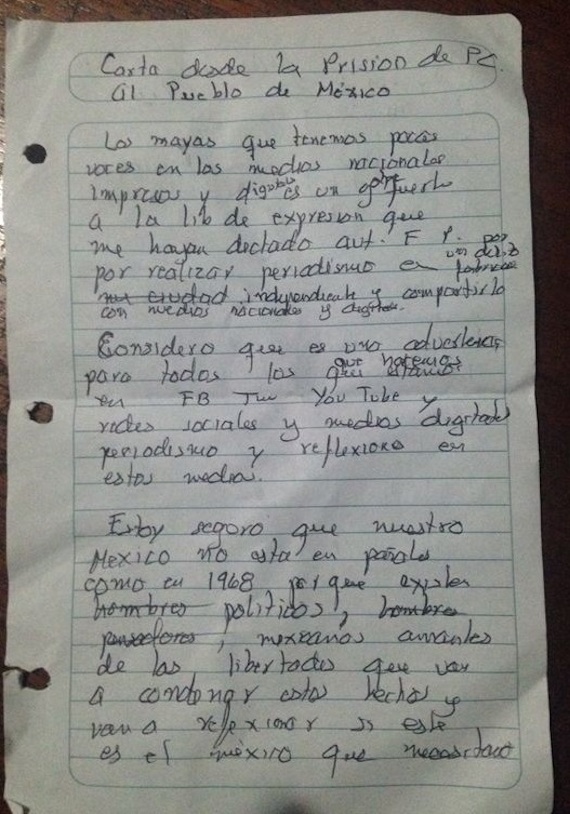 Carta desde la Prision de PC.
al Pueblo de México
Los mayas que tenemos pocas
voces en los medios nacionales
impresos y digitales es un golpe fuerte
a la lib de expresion que
me hayan dictado aut. F P. por
por realizar periodismo en un delito
ciudad independiente y compartirlo
con medios nacionales y digitales.
Considero que es una advertencia
para todos los que hacemos
que estamos
en FB Tw YouTube y
redes sociales y medios digitales
periodismo y reflexiono en
estos medios.
Estoy seguro que nuestro
Mexico no esta en pañales
como en 1968 porque existen
hombres politicos, hombres
pensadores, mexicanos amantes
de las libertades que van
a condenar estos hechos y
van a reflexionar si este
es el méxico que necesitamos